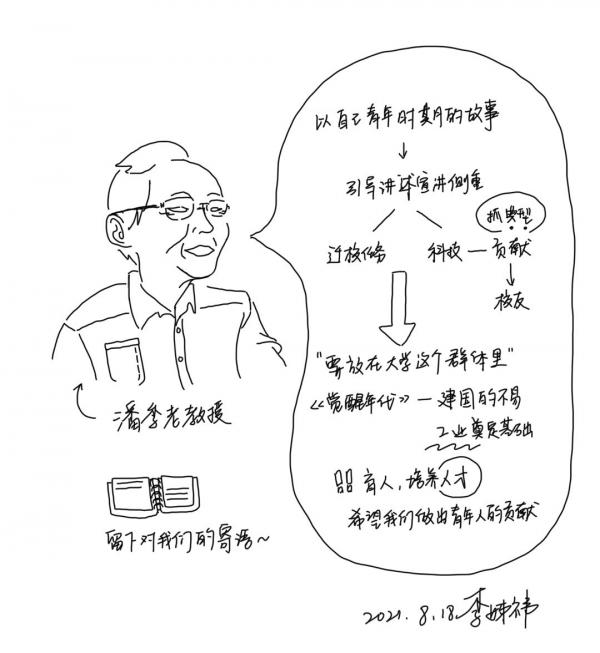 以自己青年时期的故事
↓
引导讲述宣讲侧重
迁校任务 科技—贡献
抓典型
↓
校友
"要放在大学这个群体里"
《觉醒年代》—建国的不易
工业奠定基础
育人，培养人才
希望我们做出青年人的贡献
潘季老教授
留下对我们的寄语~
2021.8.18.李